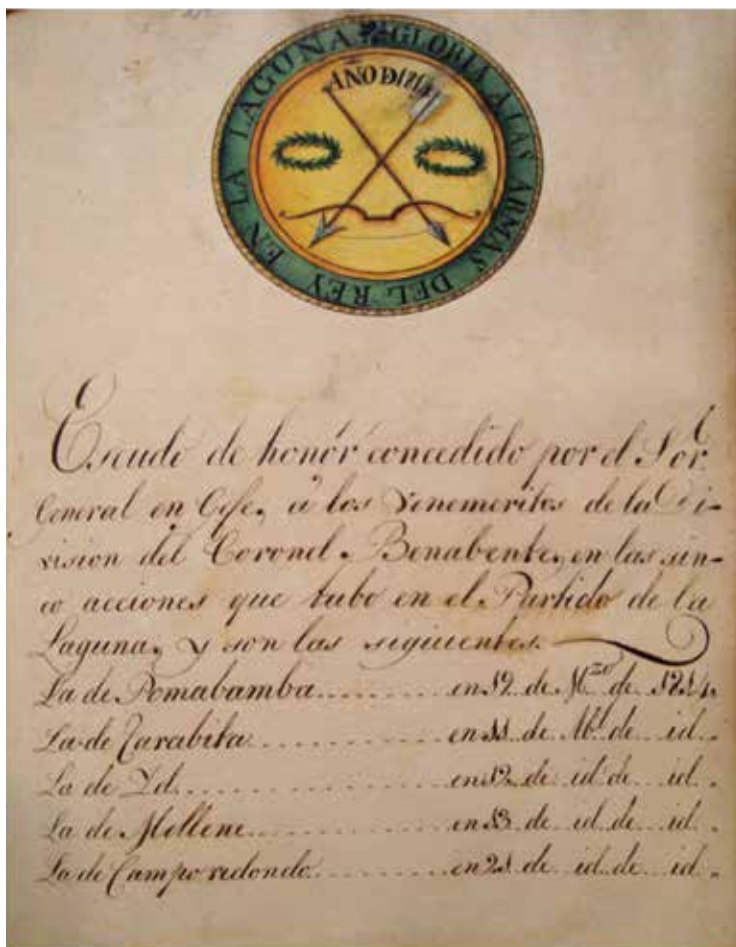 GLORIA A LAS ARMAS DEL REY EN LA LAGUNA
AÑO D
Escudo de honór concedido por el Sor.
General en Gefe, á los Venemeritos de la Di-
vision del Coronel Benabente, en las sin-
co acciones que tubo en el Partido de la
Laguna, y son las siguientes.
La de Pomabamba.......... en 19 de Mzo de 1814.
La de Tarabita.......... en 11 de Abl de id.
La de Yd.......... en 12 de id de id.
La de Mollene.......... en 13 de id de id.
La de Campo redondo.......... en 21 de id de id.